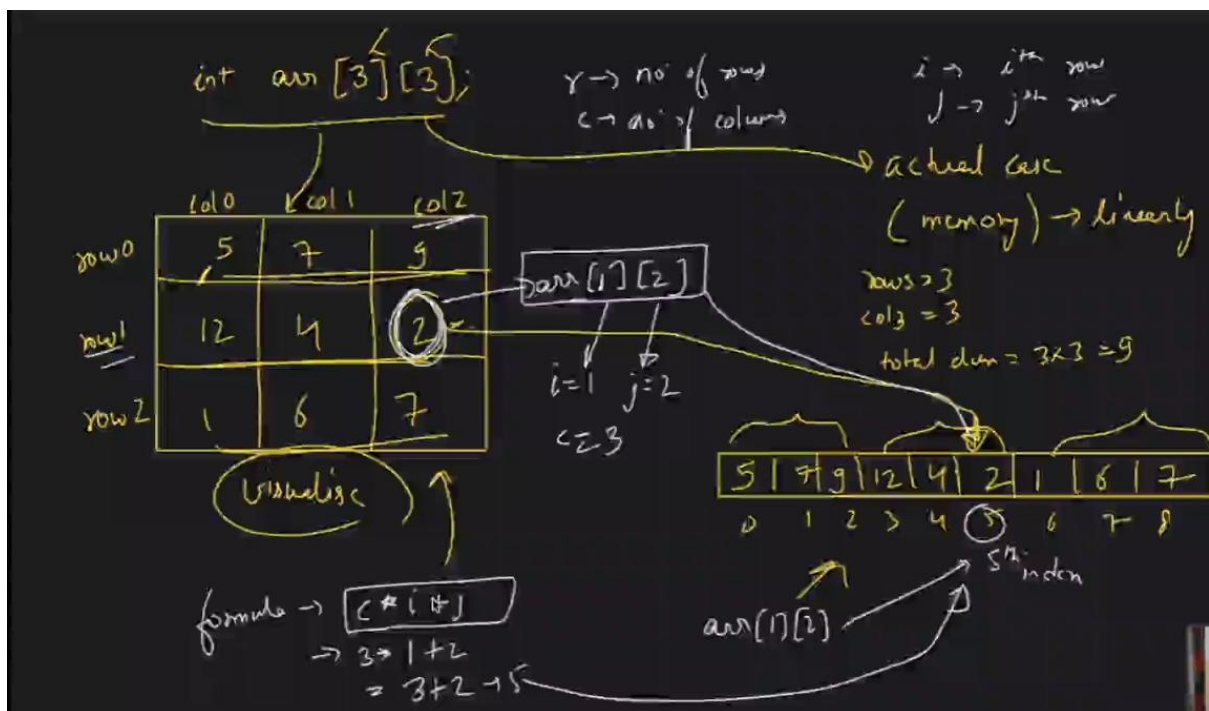 int arr [3] [3];
r → no of rows
c → no of colums
i → ith row
j → jth row
actual case
(memory) → linearly
rows = 3
cols = 3
total elem = 3×3 = 9
col0 col1 col2
row0 5 7 9
row1 12 4 2
row2 1 6 7
arr [1] [2]
i=1 j=2
c=3
visualise
5 7 9 12 4 2 1 6 7
0 1 2 3 4 5 6 7 8
5th index
arr[1][2]
formula → c * i + j
→ 3 * 1+2
= 3+2 → 5